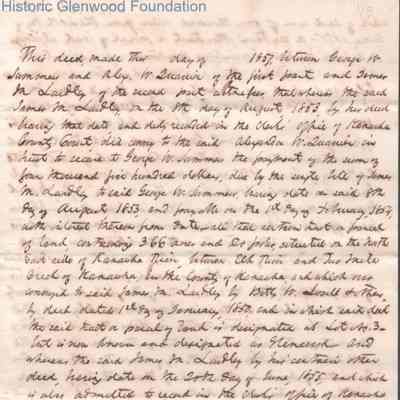 Historic Glenwood Foundation
This deed made this day of 1857 between George W
Summers and Alex. W. Quarrier of the first part and James
M. Laidley of the second part witnesseth that whereas the said
James M. Laidley on the 8th day of August 1853 by his deed
bearing that date and duly recorded in the Clerk's office of Kanawha
County Court, did convey to the said Alexander W. Quarrier in
trust to secure to George W. Summers the payment of the sum of
four thousand five hundred dollars, due by the single bill of James
M. Laidley to said George W. Summers, bearing date on said 8th
day of August 1853 and payable on the 1st day of February 1854,
with interest thereon from date, all that certain tract or parcel
of land, containing 366 acres and 20 poles, situated on the North
East side of Kanawha River between Elk River and Two Mile
Creek of Kanawha, in the County of Kanawha and which was
conveyed to said James M. Laidley by
by deed dated 1st day of January, 1852, and in which said deed
the said tract or parcel of land is designated as Lot No. 3-
but is now known and designated as Glenwood and
whereas the said James M. Laidley by his certain other
deed bearing date on the 20th day of June 1855 and which
is also admitted to record in the Clerk's office of Kanawha